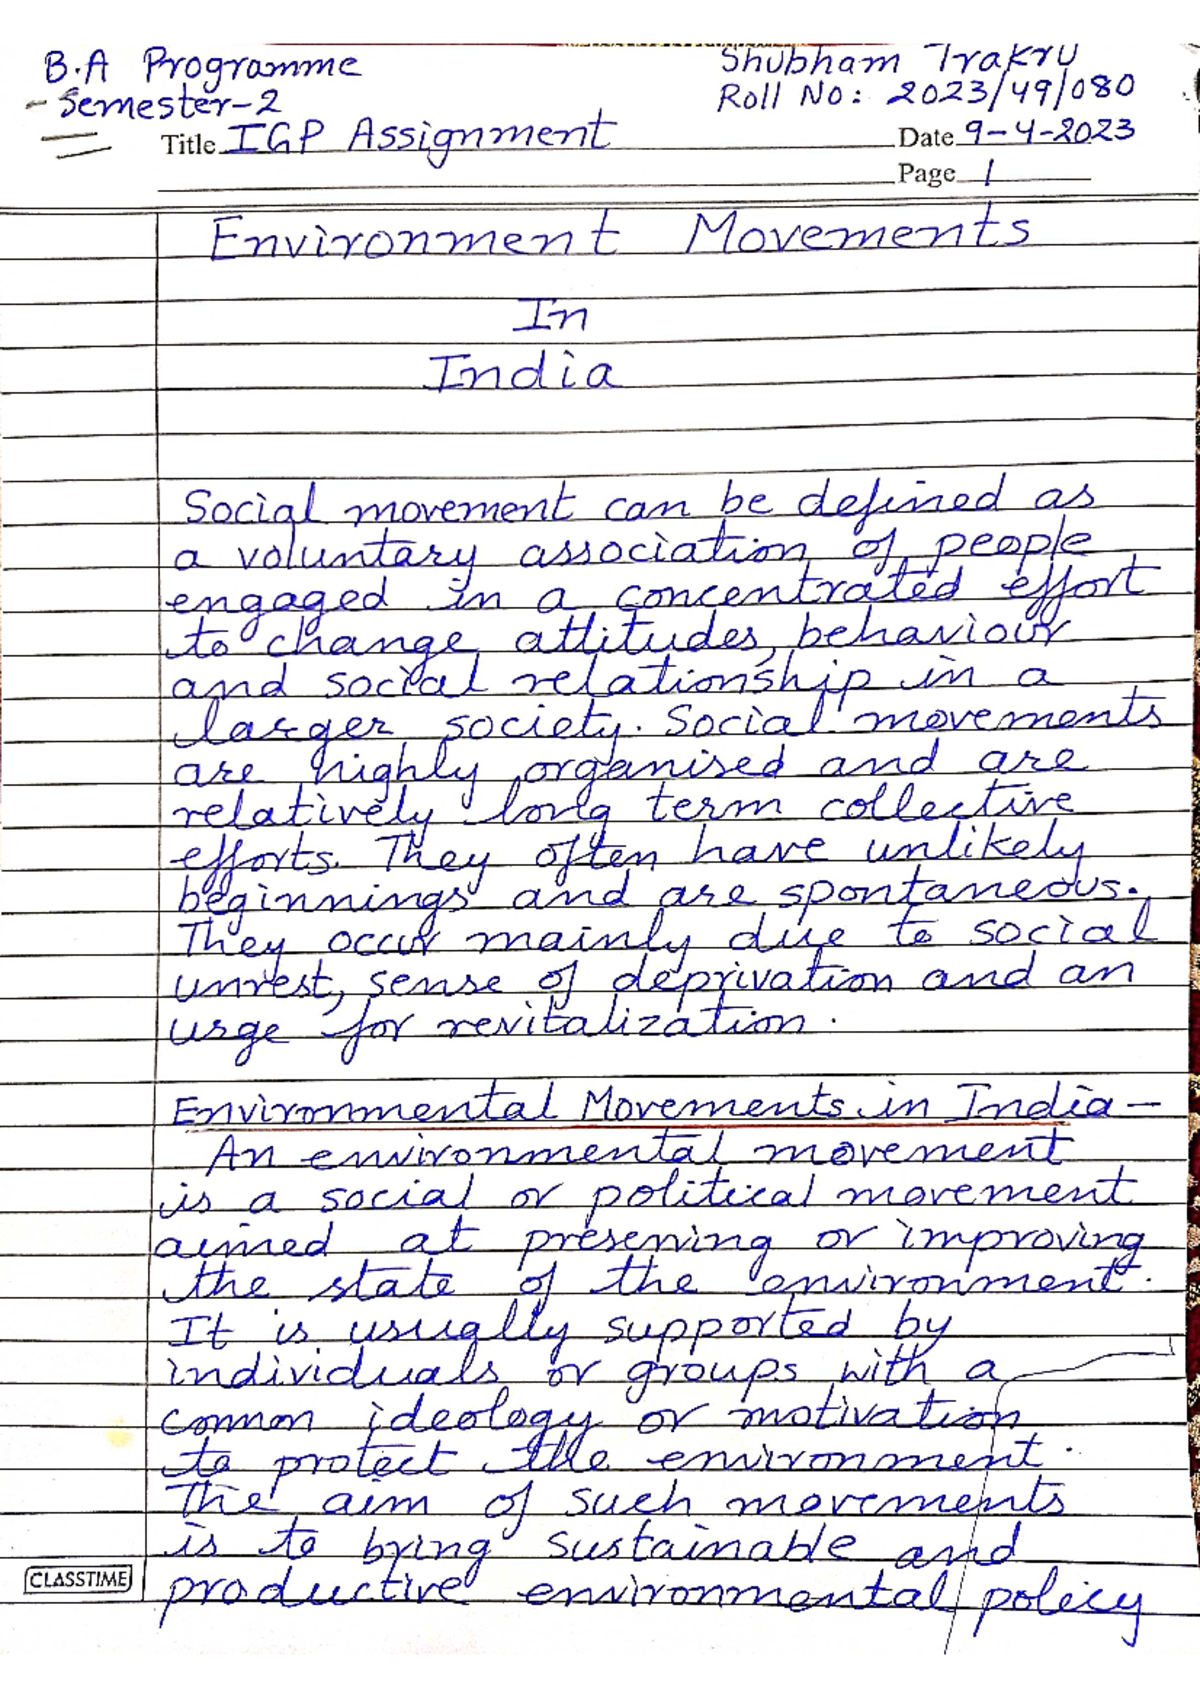 B.A Programme
Shubham Trakru
- Semester-2
Roll No: 2023/49/080
Title IGP Assignment
Date 9-4-2023
Page 1
Environment Movements
In
India
Social movement can be defined as
a voluntary association of people
engaged in a concentrated effort
to change attitudes, behaviour
and social relationship in a
larger society. Social movements
are highly organised and are
relatively long term collective
efforts. They often have unlikely
beginnings and are spontaneous.
They occur mainly due to social
unrest, sense of deprivation and an
urge for revitalization.
Environmental Movements in India -
An environmental movement
is a social or political movement
aimed at preserving or improving
the state of the environment.
It is usually supported by
individuals or groups with a
common ideology or motivation
to protect the environment.
The aim of such movements
is to bring sustainable and
productive environmental policy
CLASSTIME